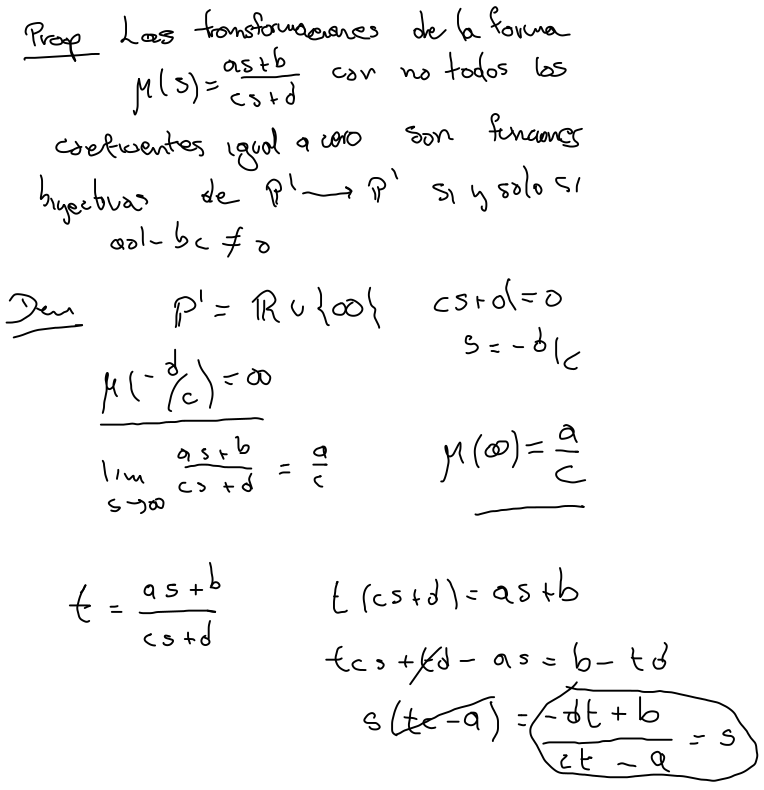 Prop Las transformaciones de la forma
μ(s) = as+b / cs+d con no todos los
coeficientes igual a cero son funciones
biyectivas de ℙ¹ ⟶ ℙ¹ si y solo si
ad - bc ≠ 0
Dem ℙ¹ = ℝ ∪ {∞} cs+d = 0
s = -d/c
μ(-d/c) = ∞
lim s→∞ as+b / cs+d = a/c μ(∞) = a/c
t = as+b / cs+d t(cs+d) = as+b
tcs + td - as = b - td
s(tc - a) = -dt + b / ct - a = s